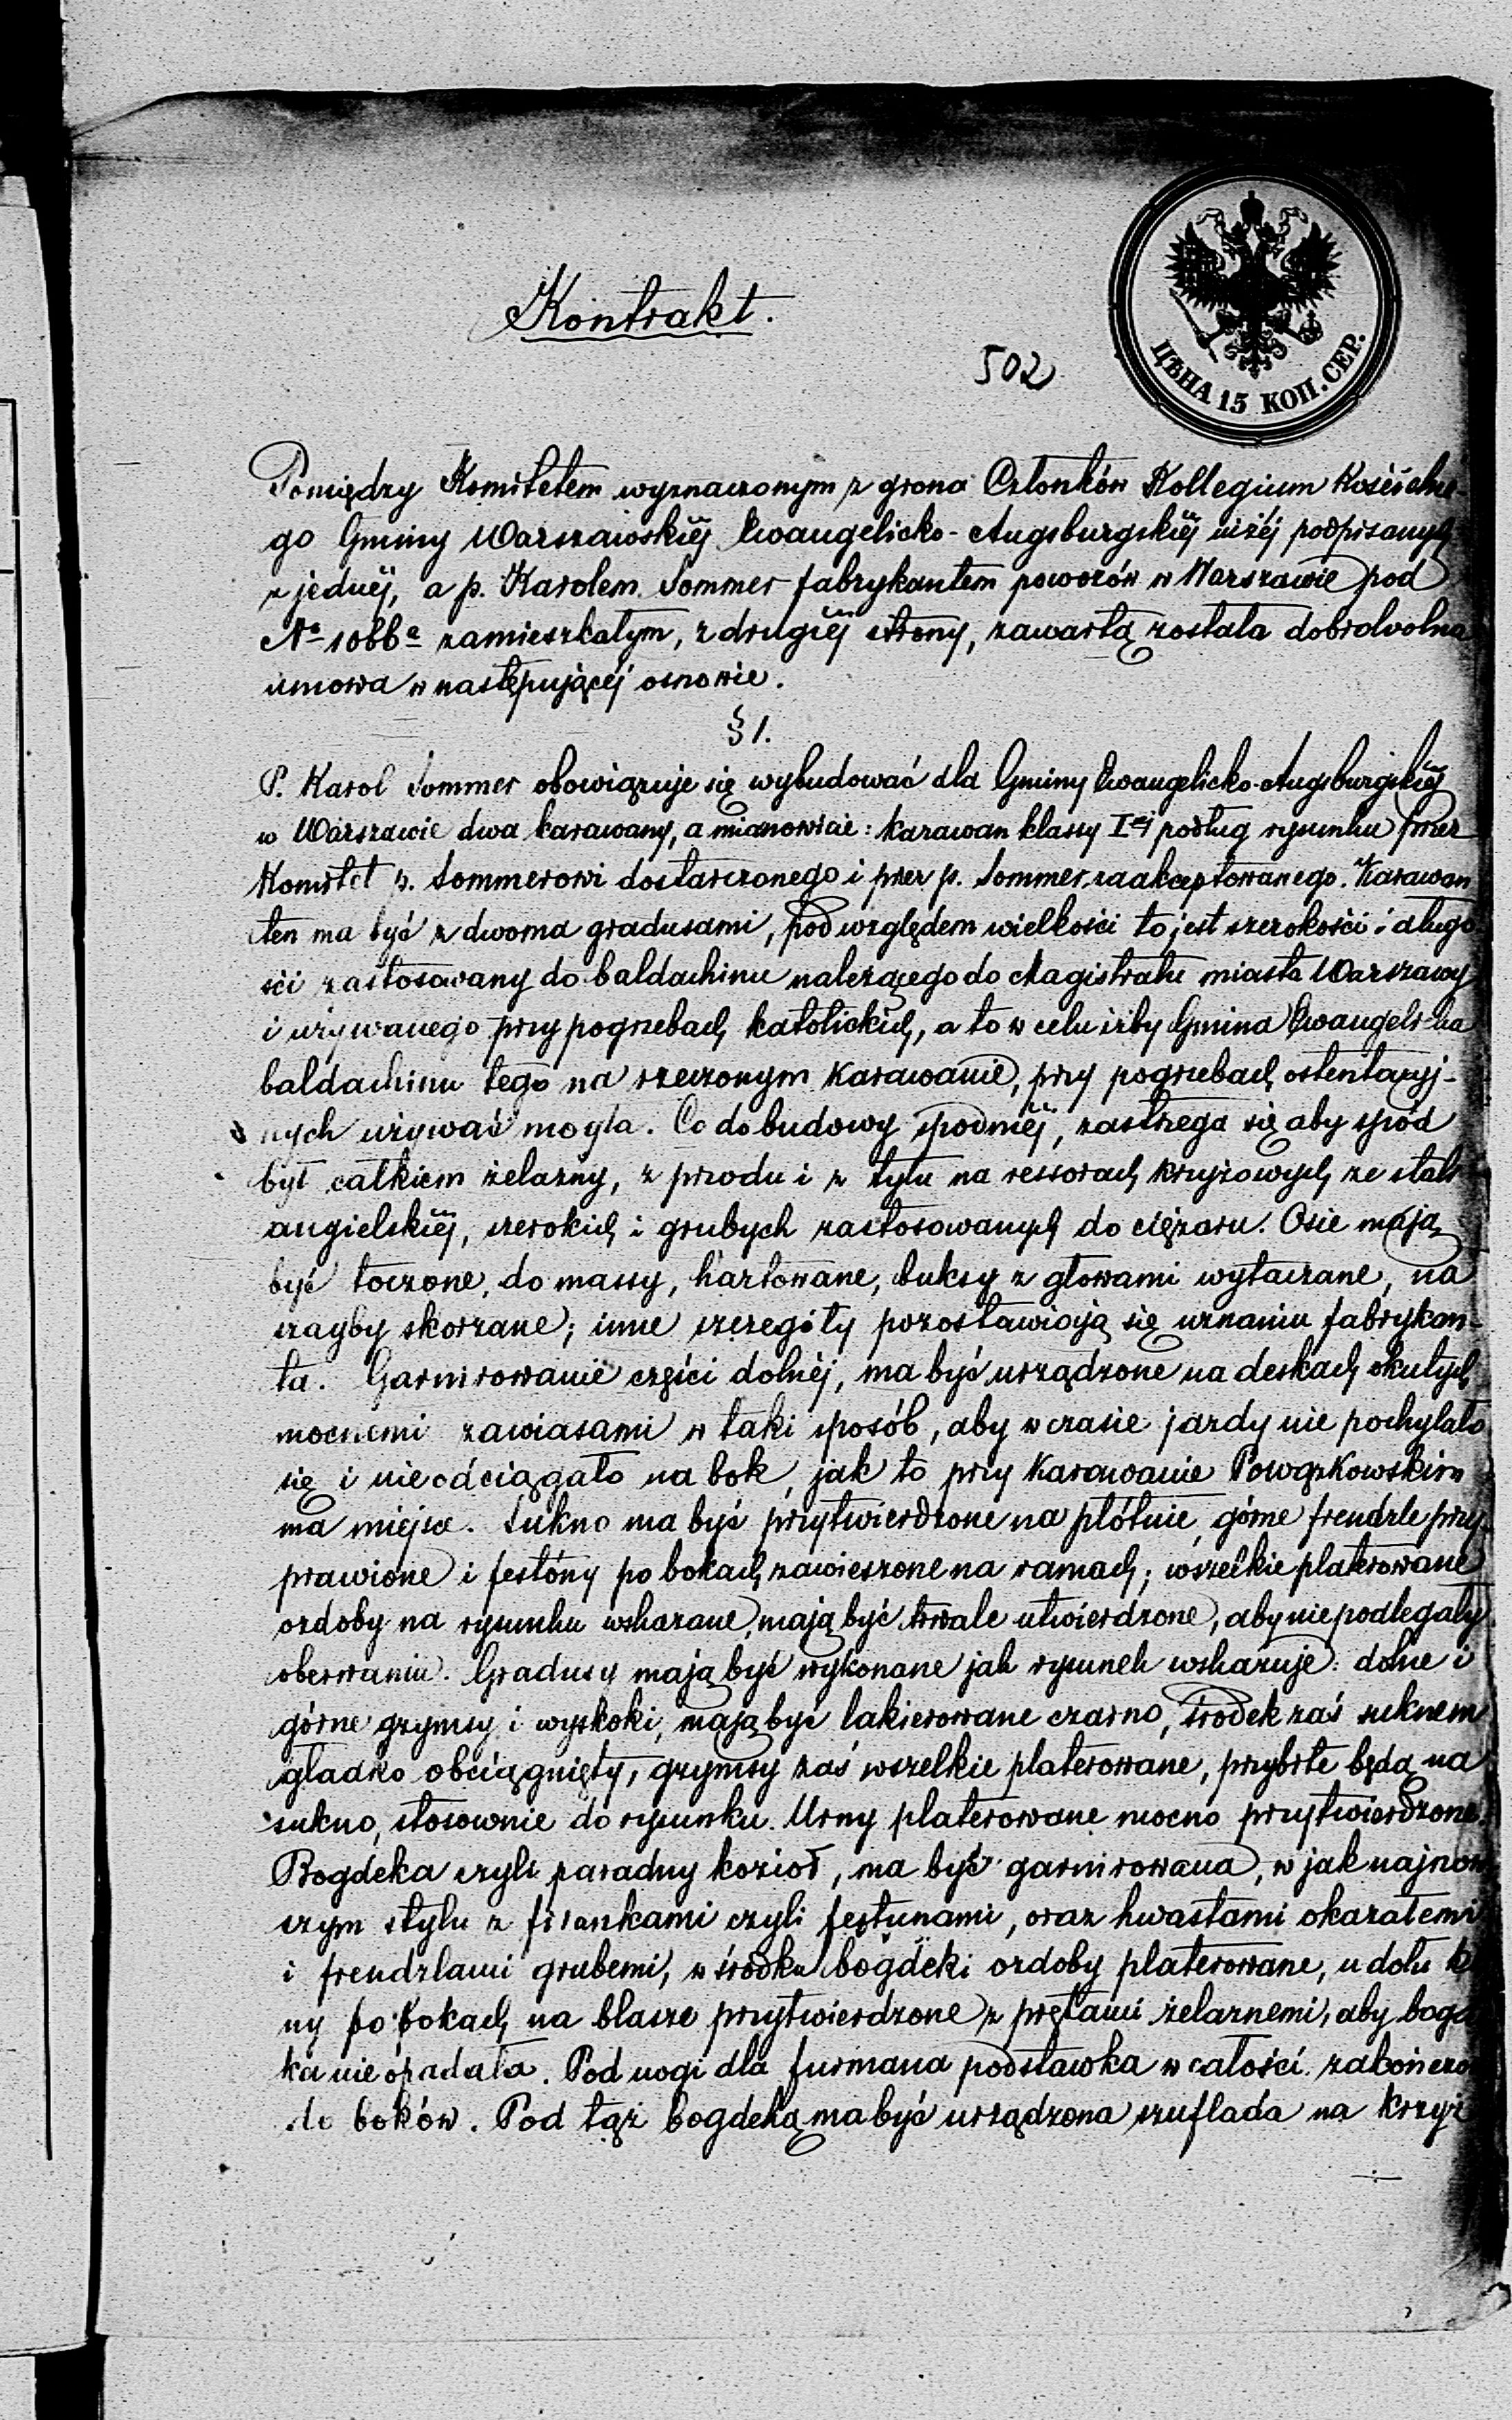 Kontrakt.
502
ЦѢНА 15 КОП. СЕР.
Pomiędzy Komitetem wyznaczonym z grona Członków Kollegium Kościelne-
go Gminy Warszawskiéj Ewangelicko-Augsburgskiéj niżéj podpisanych
z jednéj, a p. Karolem Sommer fabrykantem powozów w Warszawie pod
№ 1066a zamieszkałym, z drugiéj strony, zawartą została dobrowolna
umowa w następującéj osnowie.
§ 1.
P. Karol Sommer obowiązuje się wybudować dla Gminy Ewangelicko-Augsburgskiéj
w Warszawie dwa karawany, a mianowicie: karawan klassy Iej podług rysunku przez
Komitet p. Sommerowi dostarczonego i przez p. Sommer zaakceptowanego. Karawan
ten ma być z dwoma gradusami, pod względem wielkości to jest szerokości i długo
ści zastosowany do baldachinu należącego do Magistratu miasta Warszawy
i używanego przy pogrzebach katolickich, a to w celu iżby Gmina Ewangelicka
baldachinu tego na rzeczonym karawanie, przy pogrzebach ostentacyj-
nych używać mogła. Co do budowy spodniéj, zastrzega się aby spód
był całkiem żelazny, z przodu i z tyłu na ressorach krzyżowych ze stali
angielskiéj, szerokich i grubych zastosowanych do ciężaru. Osie mają
być toczone, do massy, hartowane, buksy z głowami wytaczane, na
szayby skórzane; inne szczegóły pozostawiają się uznaniu fabrykan-
ta. Garnirowanie części dolnéj, ma być urządzone na deskach okutych
mocnemi zawiasami w taki sposób, aby w czasie jazdy nie pochylało
się i nie odciągało na bok, jak to przy karawanie Powązkowskim
ma miejsce. Sukno ma być przytwierdzone na płótnie, górne frendzle przy-
prawione i festóny po bokach zawieszone na ramach; wszelkie platerowane
ozdoby na rysunku wskazane, mają być trwale utwierdzone, aby nie podlegały
oberwaniu. Gradusy mają być wykonane jak rysunek wskazuje: dolne i
górne gzymsy i wyskoki, mają być lakierowane czarno, środek zaś suknem
gładko obciągnięty, gzymsy zaś wszelkie platerowane, przybite będą na
sukno, stosownie do rysunku. Urny platerowane mocno przytwierdzone.
Bogdeka czyli paradny kozioł, ma być garnirowana, w jak najnow
szym stylu z firankami czyli festunami, oraz kwastami okazałemi
i frendzlami grubemi, w środku bogdeki ozdoby platerowane, u dołu
ny po bokach na blasze przytwierdzone z prętami żelaznemi, aby bogd
ka nie opadała. Pod nogi dla furmana podstawka w całości zakończo
do boków. Pod tąż bogdeką ma być urządzona szuflada na krzyż